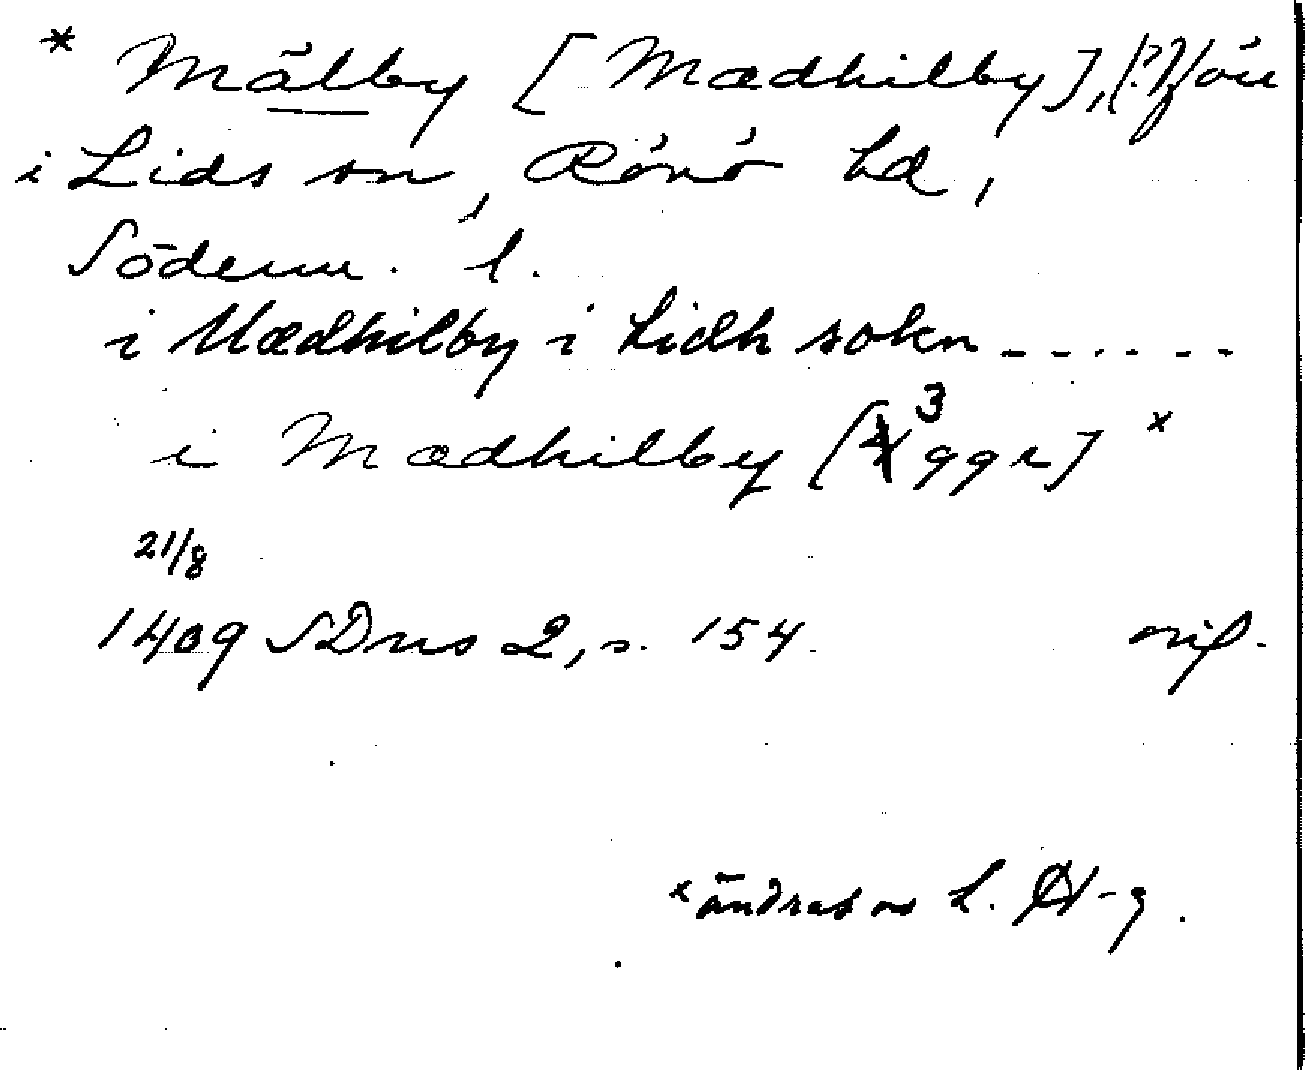 * Mälby [Mædhilby], (?) förr
i Lids sn, Rönö hd,
Söderm. l.
i Mædhilby i Lidh sokn - - - - - -
i Mædhilby [3 ggr] x
21/8
1409 SDns 2, s. 154. orig.
x ändrat av L. H-g.